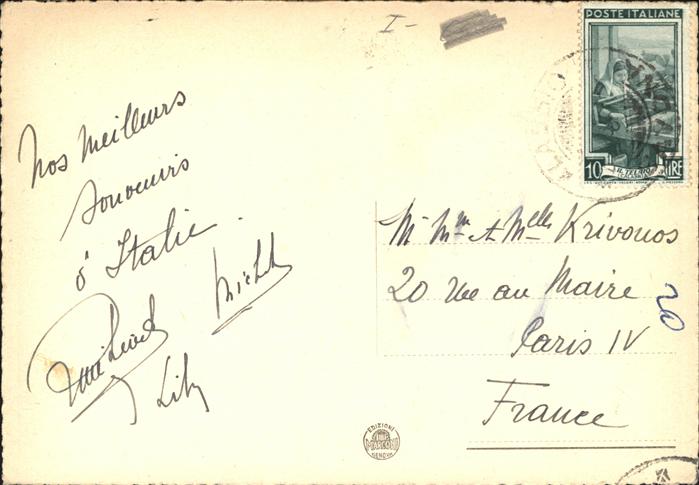 I-
POSTE ITALIANE
10 LIRE
Nos meilleurs
souvenirs
d'Italie.
Michel
Lily
M. Mme et Melles Krivonos
20 rue au Maire
20
Paris IV
France
EDIZIONI
MARCONI
GENOVA